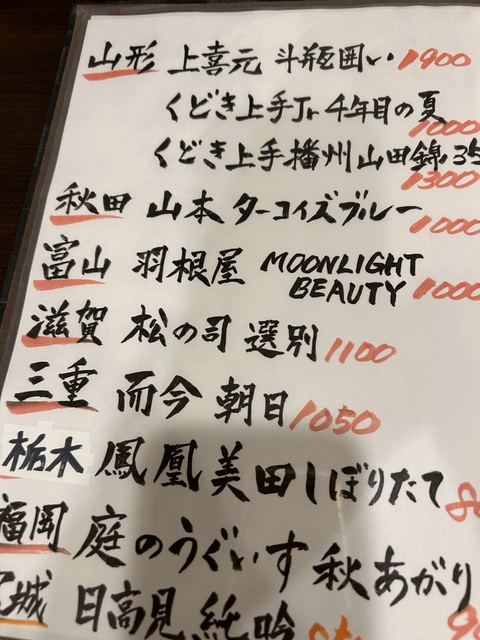 山形 上喜元 斗瓶囲い 1900
くどき上手Jr 4年目の夏
1000
くどき上手播州山田錦35
1300
秋田 山本 ターコイズブルー
1000
富山 羽根屋 MOONLIGHT
BEAUTY 1000
滋賀 松の司 選別 1100
三重 而今 朝日 1050
栃木 鳳凰美田しぼりたて
福岡 庭のうぐいす 秋あがり
城 日高見 純吟